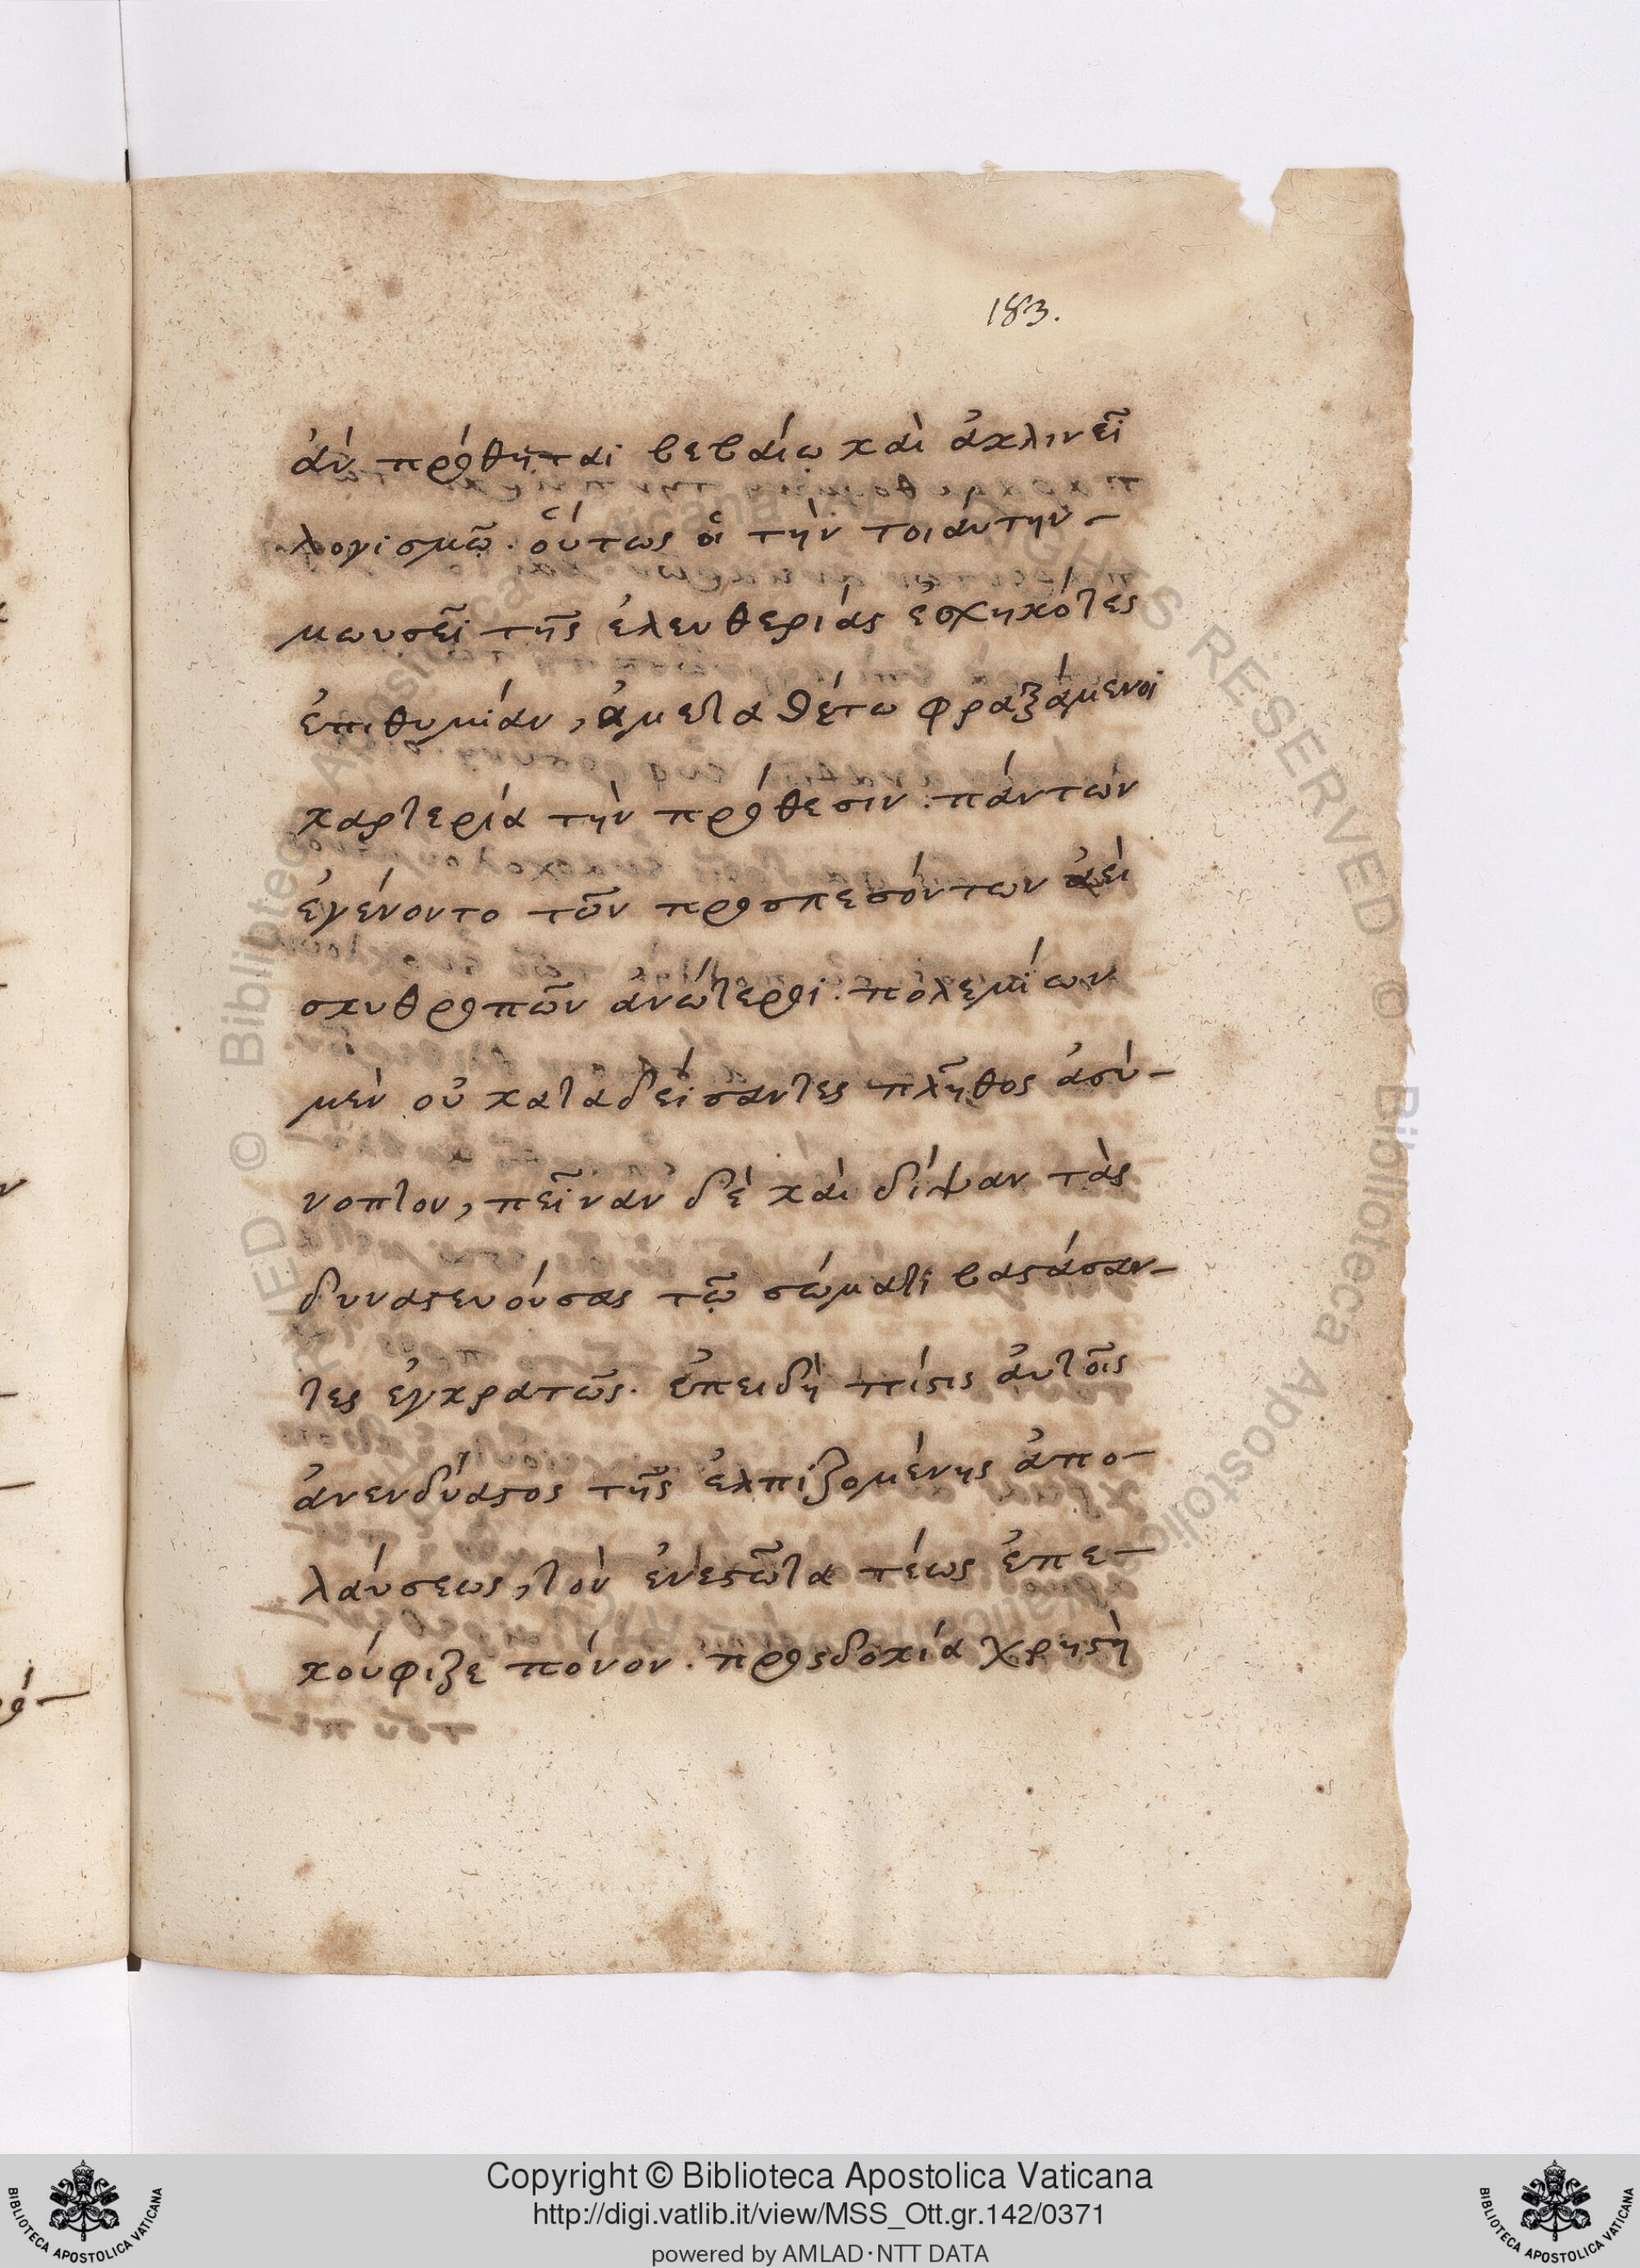 183.
ἂν πρόθηται βεβαίῳ καὶ ἀκλινεῖ
λογισμῷ. οὕτως οἱ τὴν τοιαύτην
μωυσεῖ τῆς ἐλευθερίας ἐσχηκότες
ἐπιθυμίαν, ἀμεταθέτω φραξάμενοι
καρτερία τὴν πρόθεσιν. πάντων
ἐγένοντο τῶν προσπεσόντων ἀεὶ
σκυθρωπῶν ἀνώτεροι. πολεμίων
μὲν οὐ καταδείσαντες πλῆθος ἀσύ-
νοπτον, πεῖναν δὲ καὶ δίψαν τὰς
δυναστευούσας τῷ σώματι βαστάσαν-
τες ἐγκρατῶς. ἐπειδὴ πίστις αὐτοῖς
ἀνενδύαστος τῆς ἐλπιζομένης ἀπο-
λαύσεως, τὸν ἐνεστῶτα τέως ἐπε-
κούφιζε πόνον. προσδοκία χρηστὴ
Copyright © Biblioteca Apostolica Vaticana
http://digi.vatlib.it/view/MSS_Ott.gr.142/0371
powered by AMLAD·NTT DATA
BIBLIOTECA APOSTOLICA VATICANA
BIBLIOTECA APOSTOLICA VATICANA